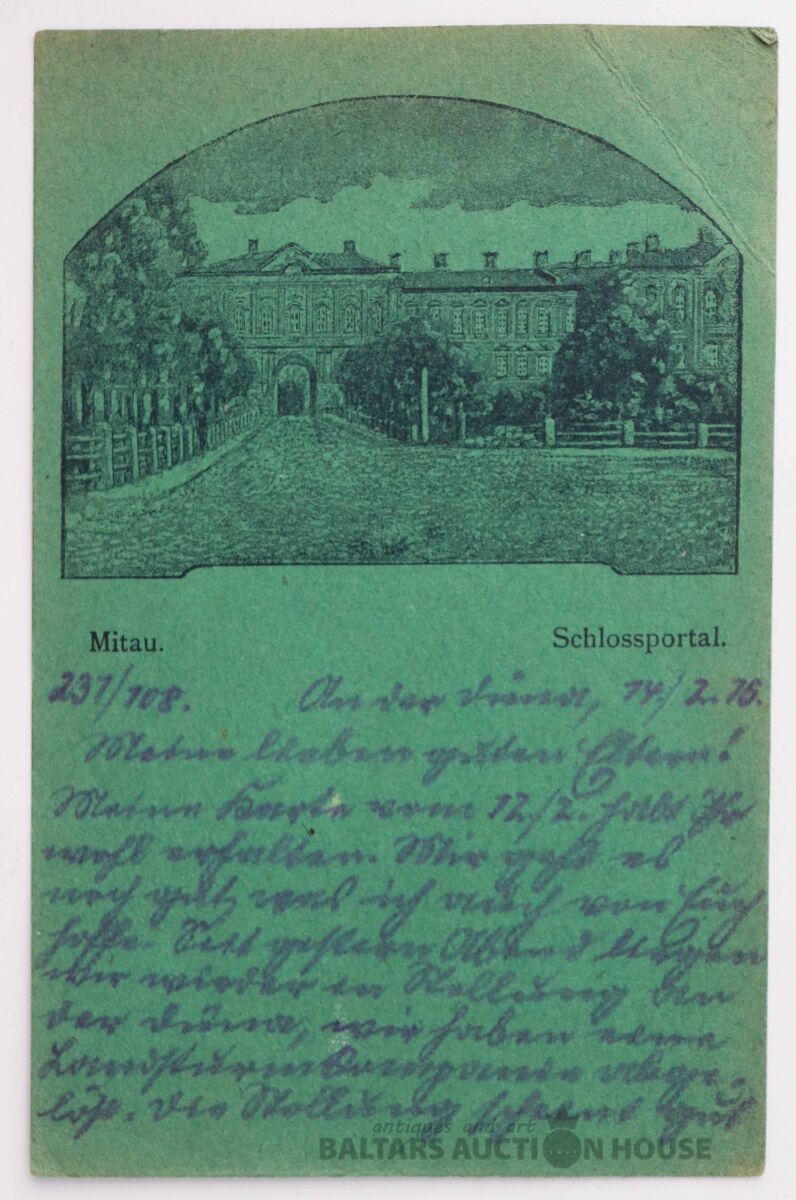 Mitau.
Schlossportal.
237/108. An der Düna, 14/2.16.
Meine lieben guten Eltern!
Meine Karte vom 12./2. habt Ihr
wohl erhalten. Mir geht es
noch gut, was ich auch von Euch
hoffe. Seit gestern Abend liegen
wir wieder in Stellung an
der Düna, wir haben eine
Landsturmkompanie abge-
löst. Die Stellung scheint gut
antiques and art
BALTARS AUCTION HOUSE